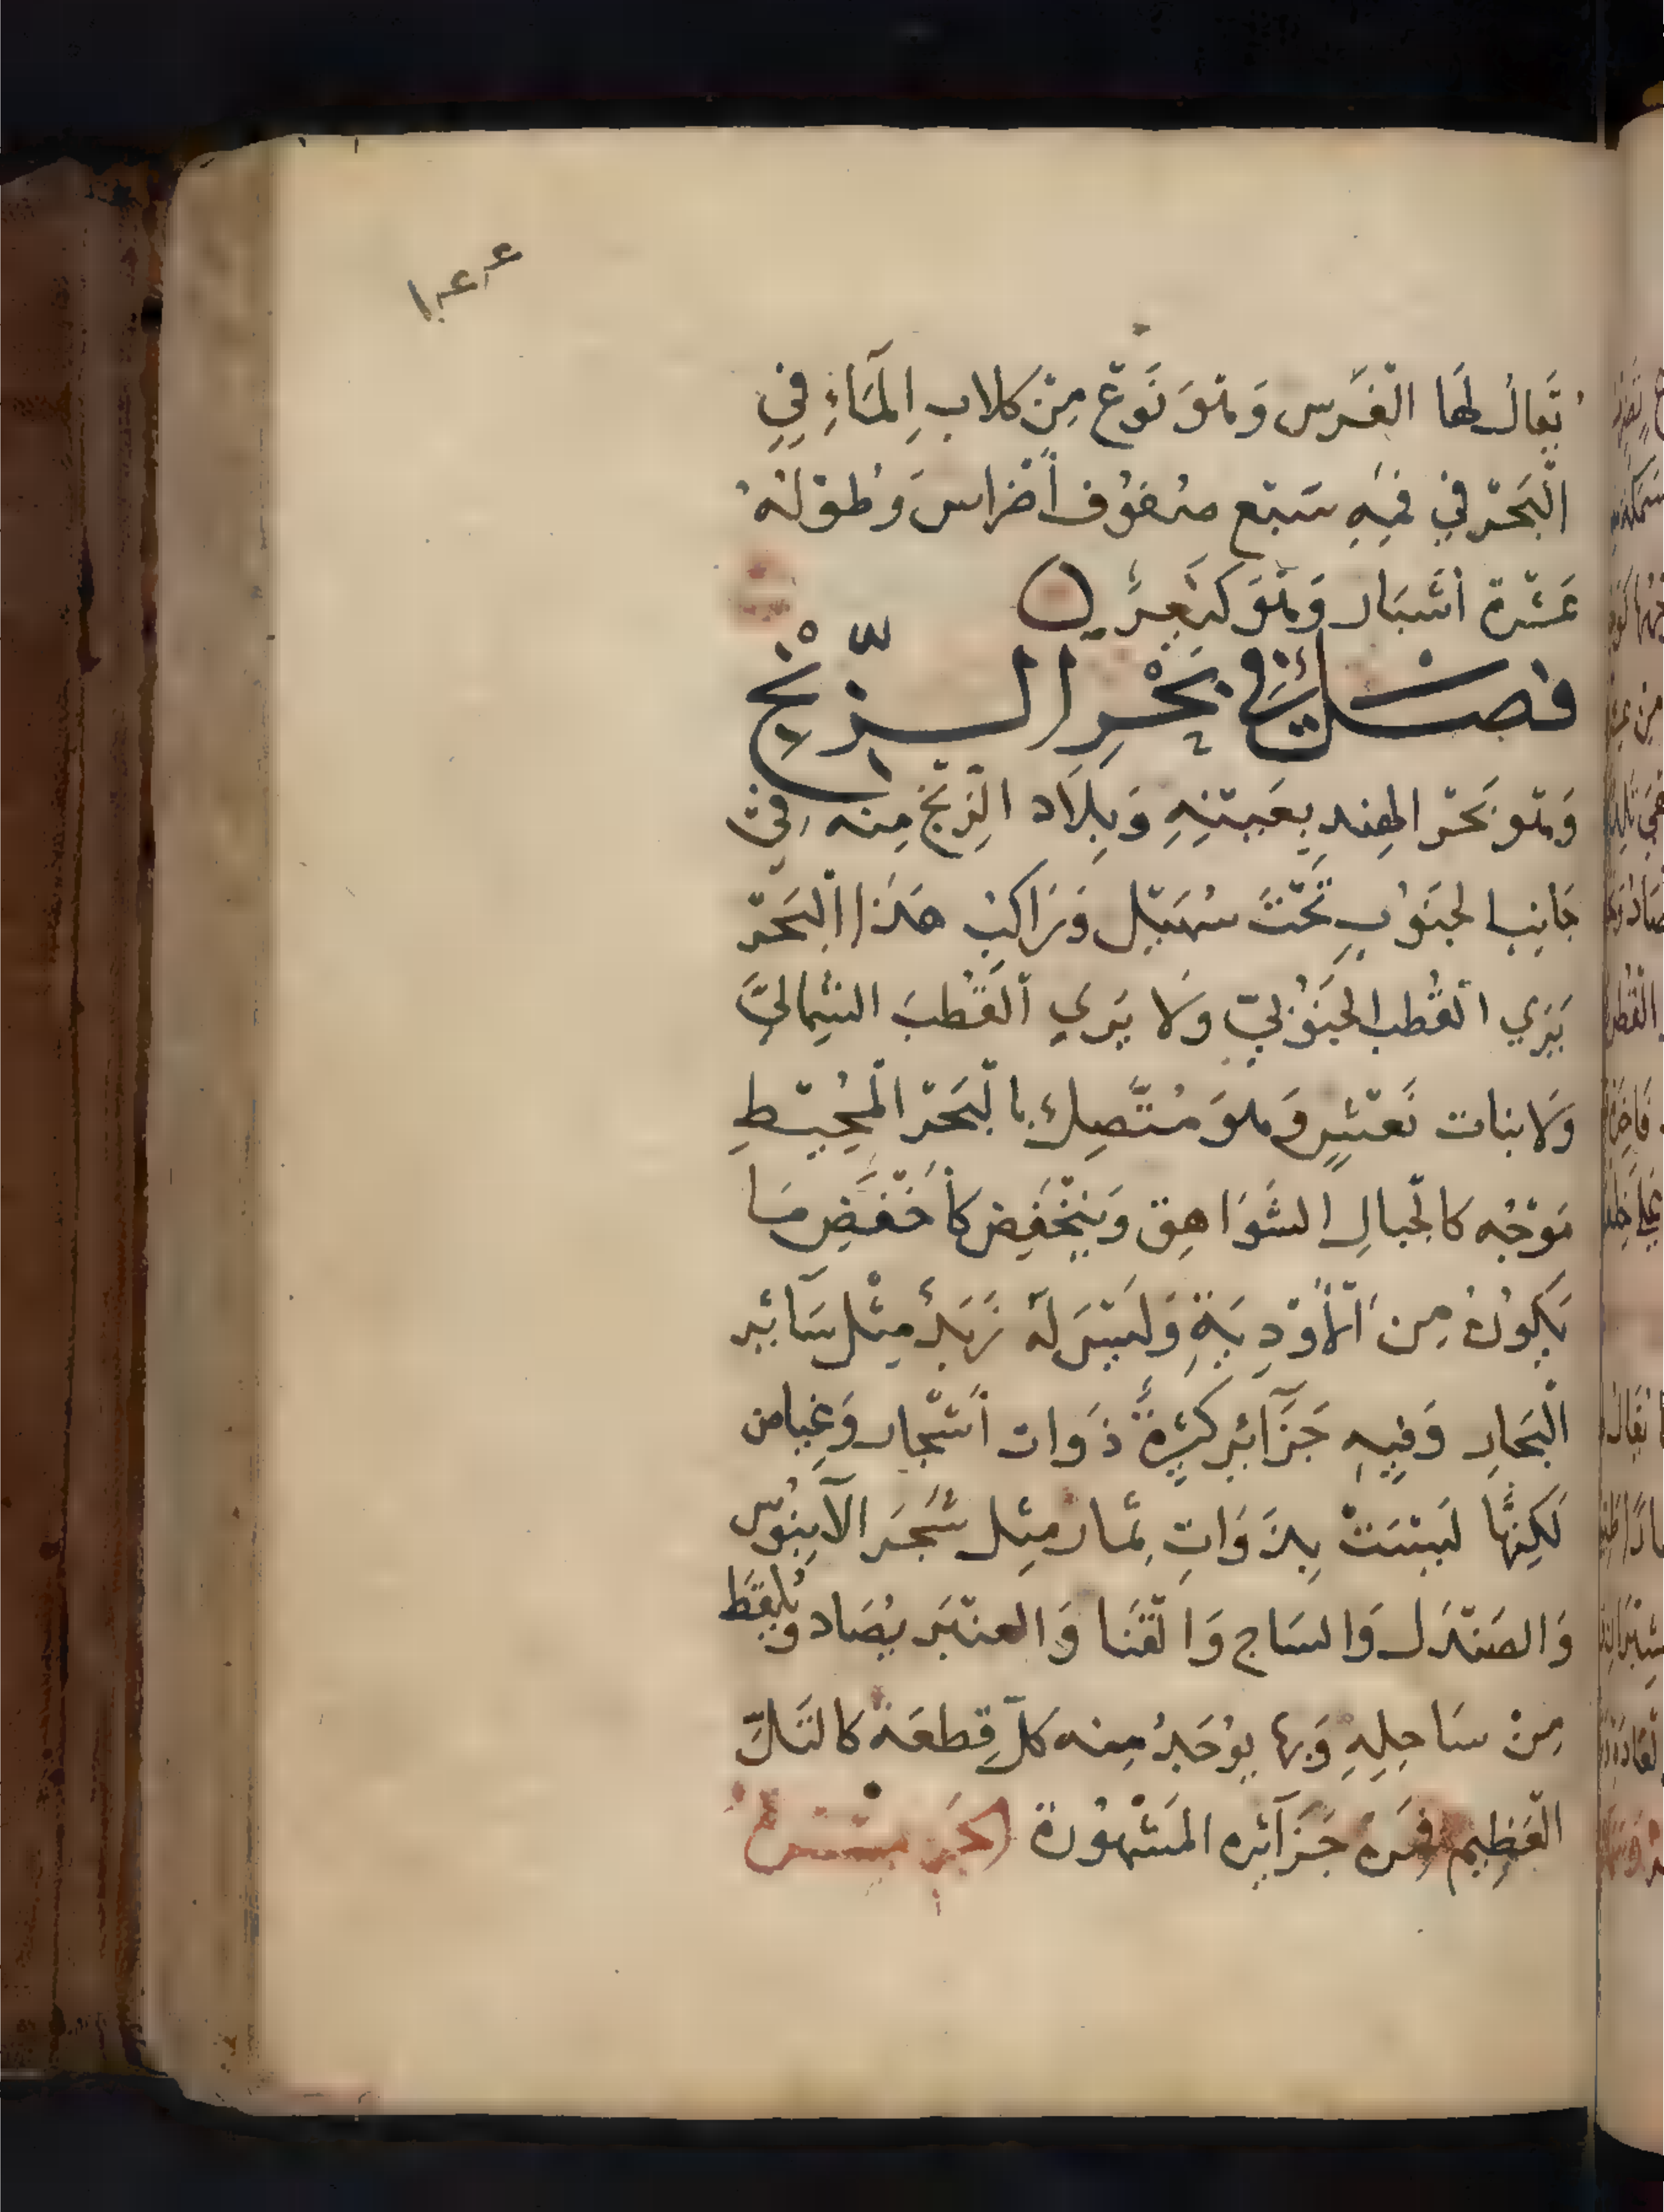 ١٤٤
يُقالُ لها القَرش وَهوَ نَوْع مِنْ كلابِ المَآءِ في
الْبَحْر في فمِهِ سَبْع صُفُوف أضْراس وَطُوْلُهُ
عَشْرة أشْبَار وَهُوَ كبَعِيرٍ
فصْلٌ في بَحْرِ الزِّنْجِ
وَهُو بَحْر الهِندِ بِعَيْنِهِ وَبِلَاد الزِنْج مِنه في
جَانِب الجنَوُبِ تَحْتَ سُهَيْل وَرَاكِبُ هَذَا الْبَحْر
يَرَي الْقُطب الجَنُوْبيّ وَلَا يَرَي الْقُطبَ الشِمَاليَّ
وَلا بنات نَعْشٍ وَهوَ مُتَّصِلٌ بالْبَحْر الْمُحِيْطِ
مَوْجُه كالْجبالِ الشَوَاهِق وَينْخَفِض كأخْفَضِ مَا
يَكِونُ مِن الْأَوْدِيَةِ وَلَيْسَ لَهُ زَبَدٌ مِثْل سَآئِر
الْبحَارِ وَفِيهِ جَزَآئِر كثِيرَةٌ ذَوات أشْجار وَغِياض
لَكِنَّهَا لَيْسَتْ بِذَوَاتِ ثمَار مِثل شَجَر الآبِنُوُس
وَالصَنْدَل وَالسَاج وَالْقَنَا وَالعنْبَر يُصَاد وَيُلْقَط
مِنْ سَاحِلِهِ وَربما يوُجَدُ مِنه كلّ قِطعَة كالتَلِّ
الْعَظِيم فمِنْ جَزَآئِره المَشْهُورَة